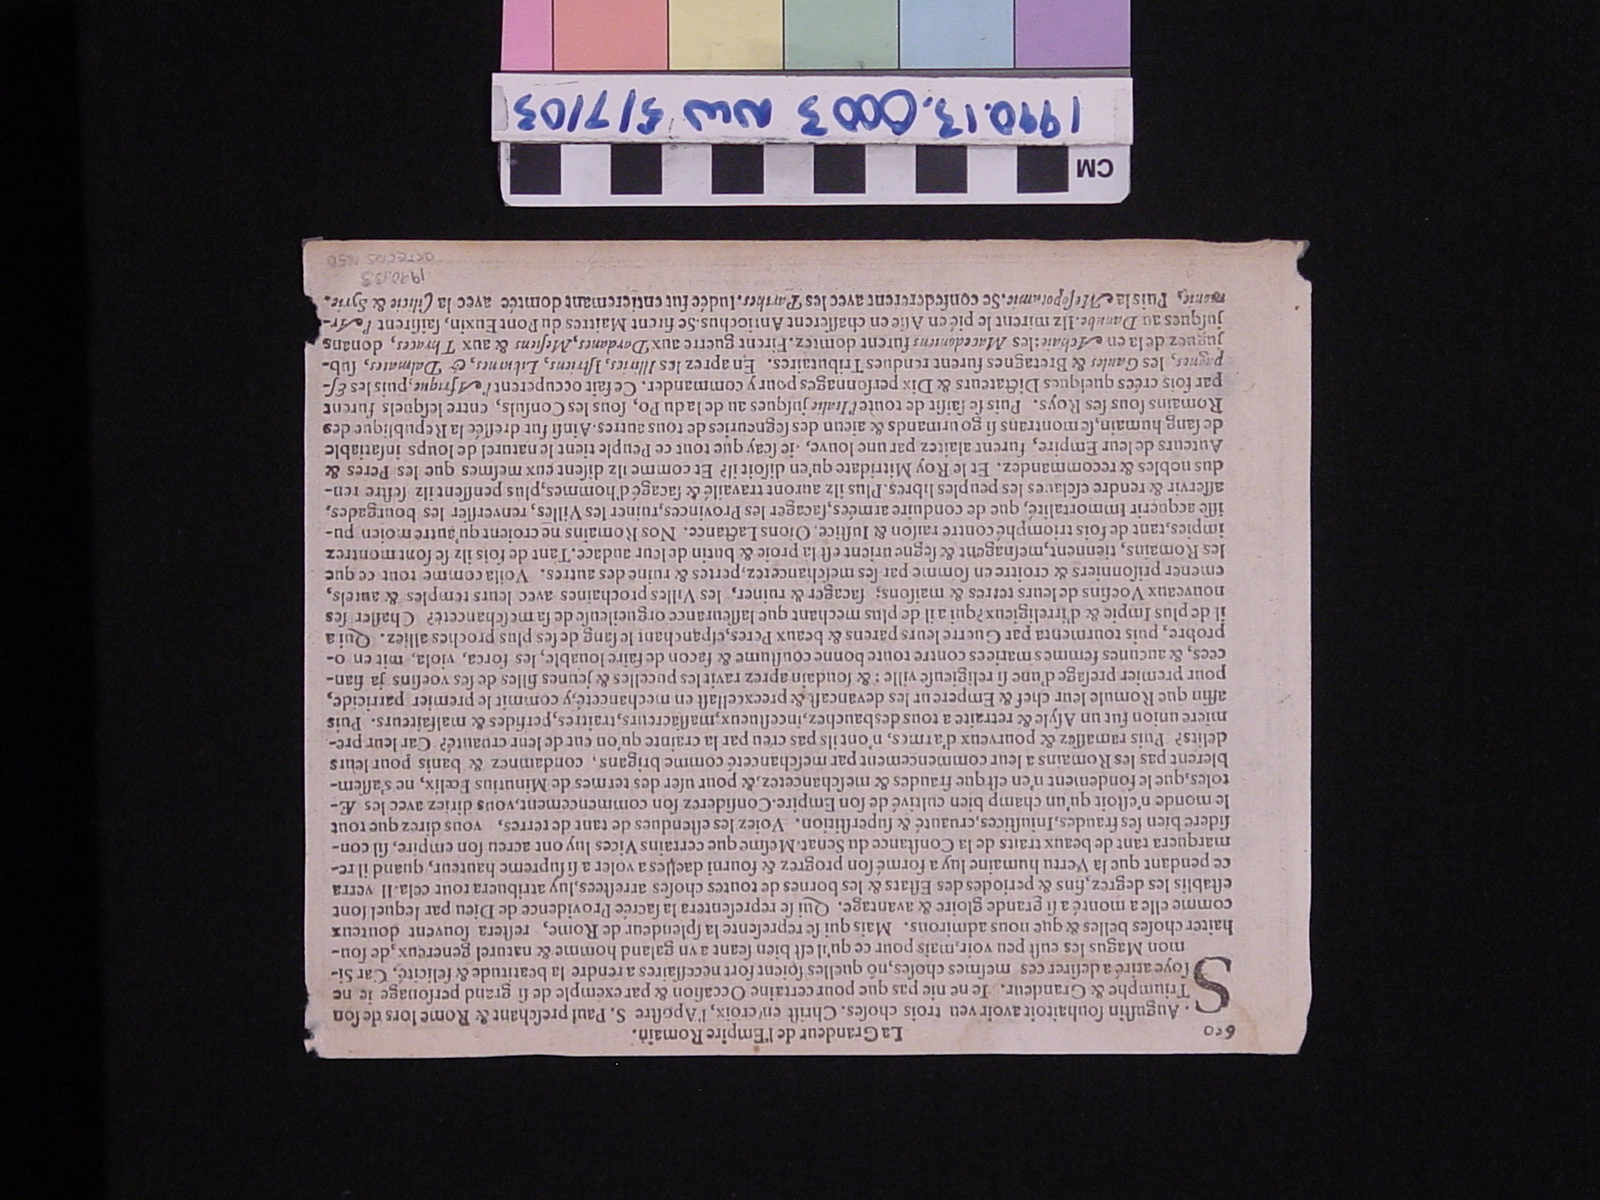 1990.13.0003 NW 5/7/03
CM
600
La Grandeur de l'Empire Romain.
S. Augustin souhaitoit avoir veu trois choses. Christ en croix, l'Apostre S. Paul preschant & Rome lors de son
Triumphe & Grandeur. Je ne nie pas que pour certaine Occasion & par exemple de si grand personage ie ne
soye atiré a desirer ces mesmes choses, nō quelles soient fort necessaires a rendre la beatitude & felicité. Car Si-
mon Magus les eust peu voir, mais pour ce qu'il est bien seant a vn galand homme & naturel genereux, de sou-
haiter choses belles & que nous admirons. Mais qui se represente la splendeur de Rome, restera souvent douteux
comme elle a monté a si grande gloire & avantage. Qui se representera la sacrée Providence de Dieu par lequel sont
establis les degrez, fins & periodes des Estats & les bornes de toutes choses arrestees, luy atribuera tout cela. Il verra
ce pendant que la Vertu humaine luy a formé son progrez & fourni daesles a voler a si supreme hauteur, quand il re-
marquera tant de beaux traits de la Constance du Senat. Mesme que certains Vices luy ont acreu son empire, sil con-
sidere bien ses fraudes, Iniustices, cruauté & superstition. Voiez les estendues de tant de terres, vous direz que tout
le monde n'estoit qu'un champ bien cultivé de son Empire. Considerez son commencement, vous diriez avec les Æ-
toles, que le fondement n'en est que fraudes & meschancetez, & pour user des termes de Minutius Fœlix, ne s'assem-
blerent pas les Romains a leur commencement par meschanceté comme brigans, condamnez & banis pour leurs
delits? Puis ramassez & pourveux d'armes, n'ont ils pas creu par la crainte qu'on eut de leur cruauté? Car leur pre-
miere union fut un Asyle & retraite a tous desbauchez, incestueux, massacreurs, traitres, perfides & malfaiteurs. Puis
affin que Romule leur chef & Empereur les devancast & preexcellast en mechanceté, y commit le premier parricide,
pour premier presage d'une si religieuse ville: & soudain aprez ravit les pucelles & jeunes filles de ses voesins ja fian-
cees, & aucunes femmes mariees contre toute bonne coustume & facon de faire louable, les força, viola, mit en o-
probre, puis tourmenta par Guerre leurs parens & beaux Peres, espanchant le sang de ses plus proches alliez. Qui a
il de plus impie & d'irreligieux? qui a il de plus mechant que lasseurance orgueileuse de sa meschanceté? Chasser ses
nouveaux Voesins de leurs terres & maisons, sacager & ruiner, les Villes prochaines avec leurs temples & autels,
emener prisonniers & croitre en somme par ses meschancetez, pertes & ruine des autres. Voila comme tout ce que
les Romains, tiennent, mesnagent & segneurient est la proie & butin de leur audace. Tant de fois ilz se sont montrez
impies, tant de fois triomphé contre raison & Iustice. Oions Lactance. Nos Romains ne croient qu'autre moien pu-
isse acquerir Immortalité, que de conduire armées, sacager les Provinces, ruiner les Villes, renverser les bourgades,
asservir & rendre esclaves les peuples libres. Plus ilz auront travailé & sacagé d'hommes, plus penssent ilz sestre ren-
dus nobles & recommandez. Et le Roy Mitridate qu'en disoit il? Et comme ilz disent eux mesmes que les Peres &
Auteurs de leur Empire, furent alaitez par une louve, ie sçay que tout ce Peuple tient le naturel de loups insatiable
de sang humain, se montrans si gourmands & aieun des segneuries de tous autres. Ainsi fut dressée la Republique des
Romains sous ses Roys. Puis se saisit de toute l'Italie jusques au de la du Po, sous les Consuls, entre lesquels furent
par fois creés quelques Dictateurs & Dix personnages pour y commander. Ce fait occuperent l'Afrique, puis les Es-
pagnes, les Gaules & Bretagnes furent rendues Tributaires. En aprez les Illirics, Istriens, Liburnes, & Dalmates, sub-
juguez de la en Achaie: les Macedoniens furent domtez. Firent guerre aux Dardanes, Mesiens & aux Thraces, donans
jusques au Danube. Ilz mirent le pié en Asie en chasserent Antiochus. Se firent Maitres du Pont Euxin, saisirent l'Ar-
menie, Puis la Mesopotamie. Se confedererent avec les Parthes. Iudée fut entieremant domtée avec la Cilicie & Syrie.
1990.13.3
ORTELIUS 1650